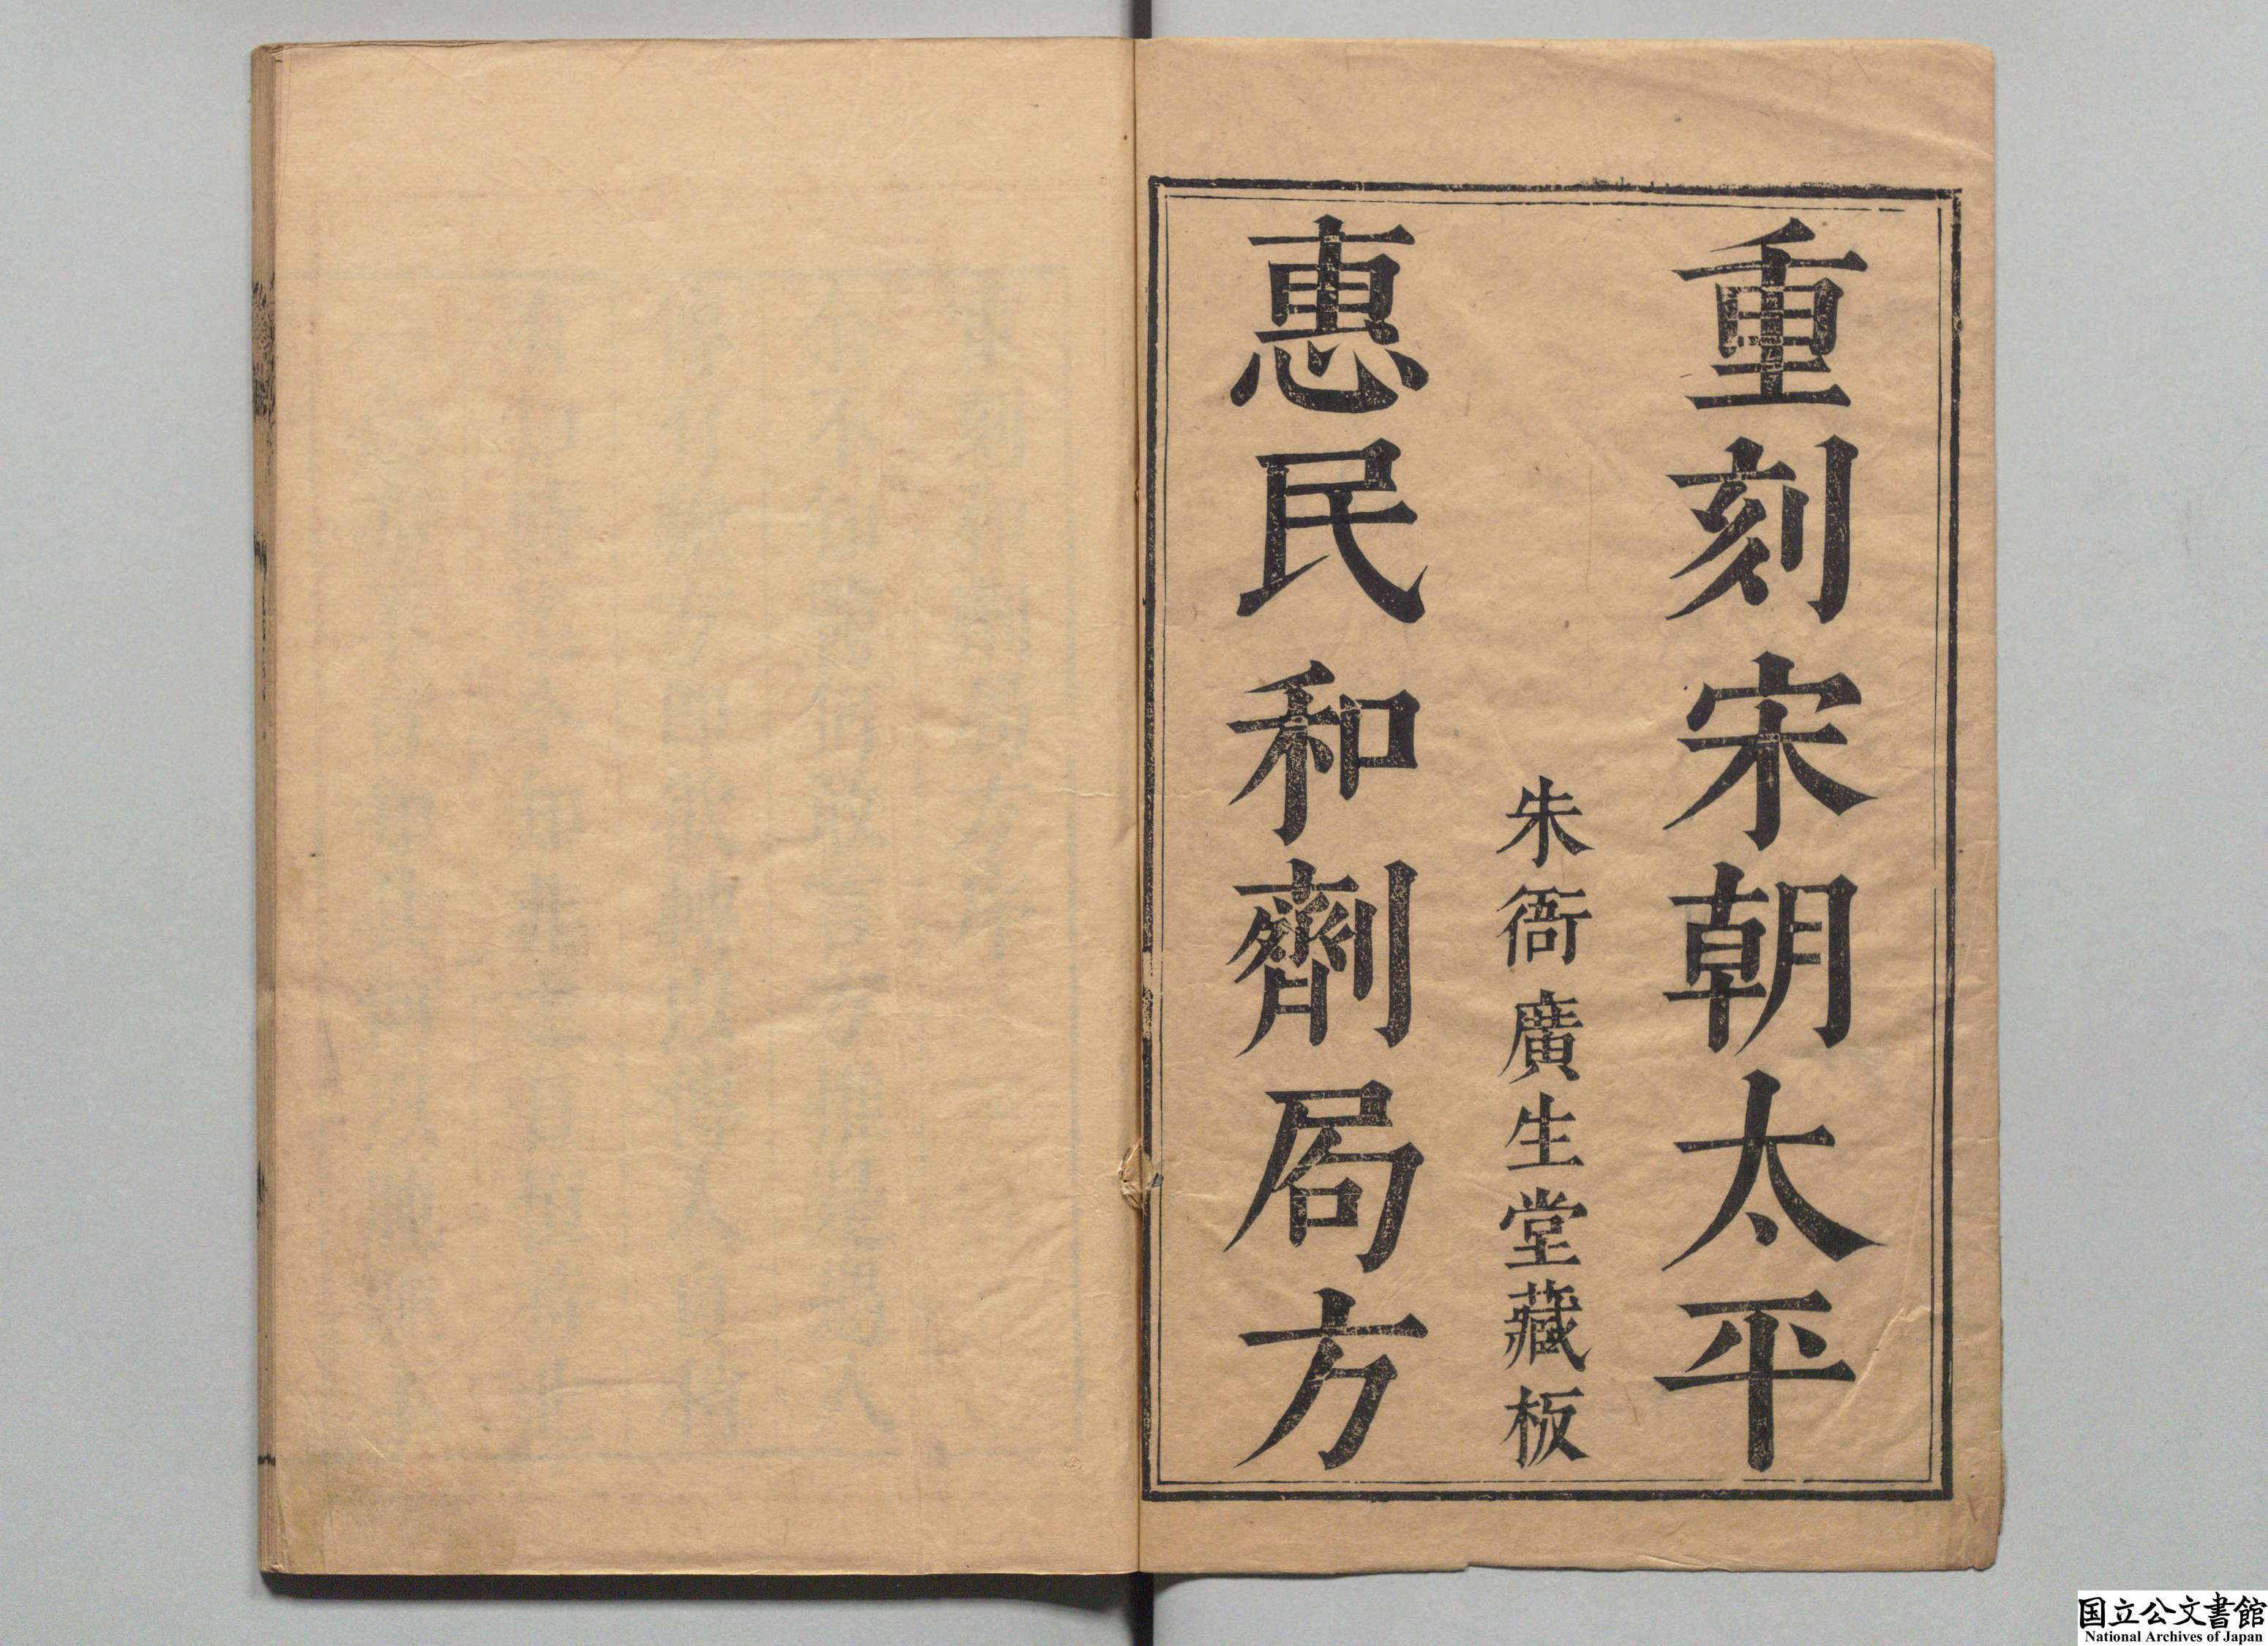 重刻宋朝太平
朱衙廣生堂藏板
惠民和劑局方
国立公文書館
National Archives of Japan